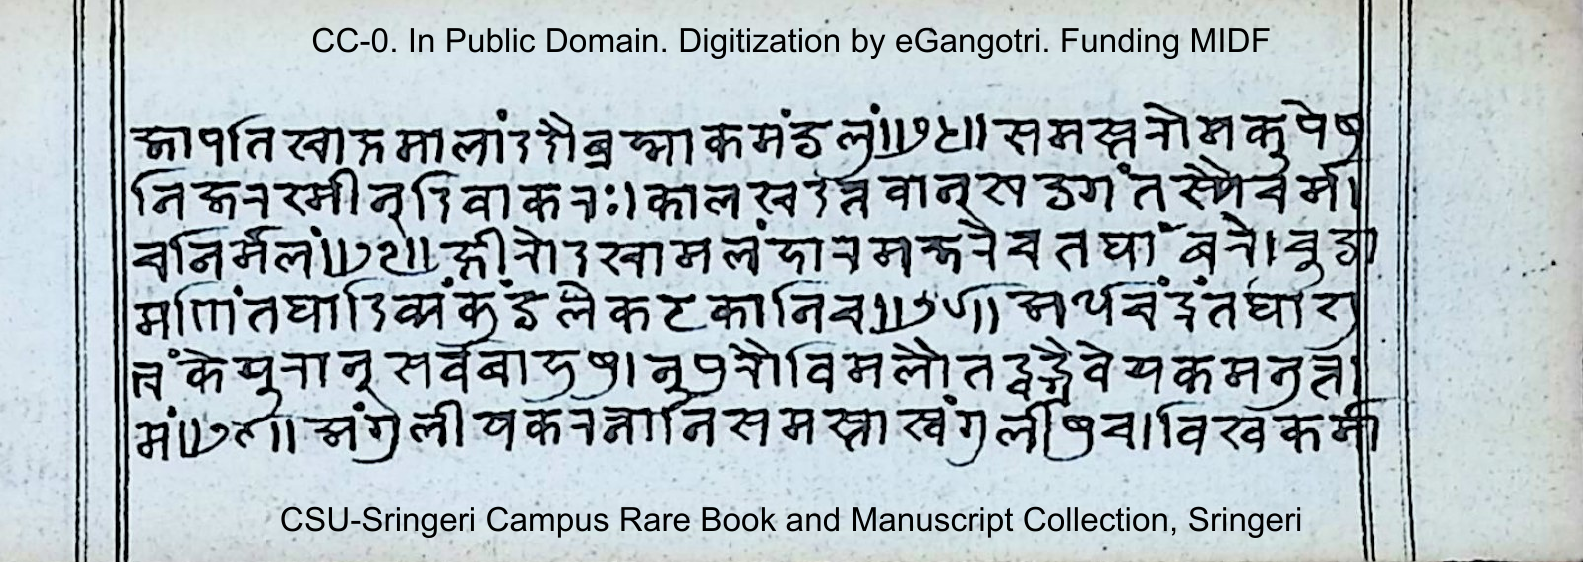 CC-0. In Public Domain. Digitization by eGangotri. Funding MIDF
जापतिश्चाक्षमालां ददौ ब्रह्माकमंडलुं॥ ॥समस्तरोमकुपेषु
निजरस्मीन् दिवाकरः।कालश्च दत्तवान् खडगं तस्यै चर्म।
चनिर्मलं॥ ॥क्षीरोदश्चामलं हारमजरे च तथांबरे।चुडा
मणिं तथा दिव्यं कुंडले कटकानि च॥ ॥अर्धचंद्रं तथा शु
भ्रं केयुरान् सर्वबाहुषु।नुपुरौ विमलौ तद्वद्ग्रैवेयकमनुत्त।
मं॥ ॥अंगुलीयकरत्नानि समस्तास्वंगुलीषु च।विश्वकर्मा
CSU-Sringeri Campus Rare Book and Manuscript Collection, Sringeri